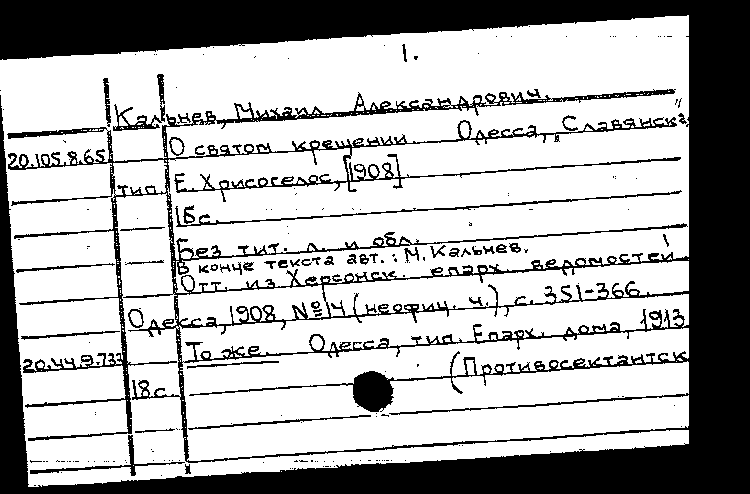 1.
Кальнев, Михаил Александрович.
20.105.8.65 О святом крещении. Одесса, „Славянск“
тип. Е. Хрисогелос, [1908].
16с.
Без тит. л. и обл.
В конце текста авт.: М. Кальнев.
Отт. из Херсонск. епарх. ведомостей
Одесса, 1908, №14 (неофиц. ч.), с. 351-366.
20.44.9.733 То же. Одесса, тип. Епарх. дома, 1913
18с. (Противосектантск